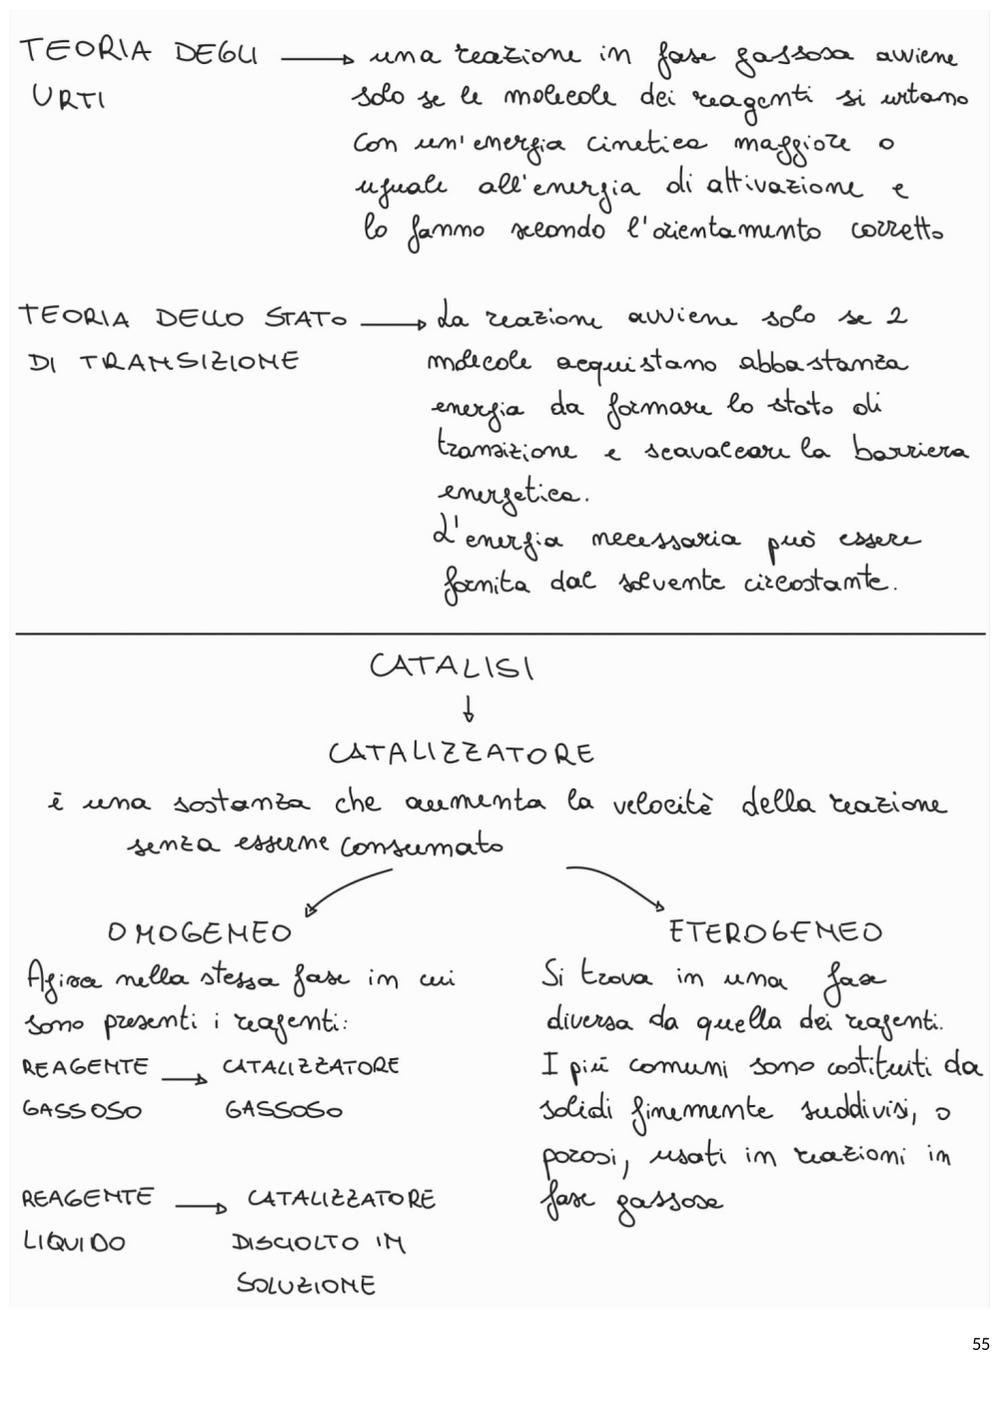 TEORIA DEGLI → una reazione in fase gassosa avviene
URTI solo se le molecole dei reagenti si urtano
con un'energia cinetica maggiore o
uguale all'energia di attivazione e
lo fanno secondo l'orientamento corretto
TEORIA DELLO STATO → La reazione avviene solo se 2
DI TRANSIZIONE molecole acquistano abbastanza
energia da formare lo stato di
transizione e scavalcare la barriera
energetica.
L'energia necessaria può essere
fornita dal solvente circostante.
CATALISI
↓
CATALIZZATORE
è una sostanza che aumenta la velocità della reazione
senza esserne consumato
OMOGENEO
Agisce nella stessa fase in cui
sono presenti i reagenti:
REAGENTE → CATALIZZATORE
GASSOSO GASSOSO
REAGENTE → CATALIZZATORE
LIQUIDO DISCIOLTO IN
SOLUZIONE
ETEROGENEO
Si trova in una fase
diversa da quella dei reagenti.
I più comuni sono costituiti da
solidi finemente suddivisi, o
porosi, usati in reazioni in
fase gassosa
55